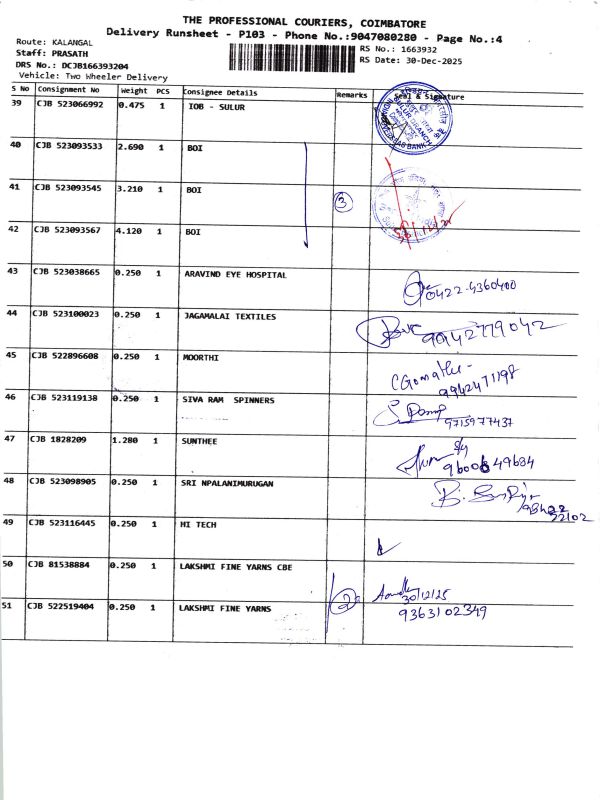 THE PROFESSIONAL COURIERS, COIMBATORE
Delivery Runsheet - P103 - Phone No.:9047080280 - Page No.:4
Route: KALANGAL
Staff: PRASATH
DRS No.: DCJB166393204
Vehicle: Two Wheeler Delivery
RS No.: 1663932
RS Date: 30-Dec-2025
S No Consignment No Weight PCS Consignee Details Remarks Seal & Signature
39 CJB 523066992 0.475 1 IOB - SULUR
40 CJB 523093533 2.690 1 BOI
41 CJB 523093545 3.210 1 BOI 3
42 CJB 523093567 4.120 1 BOI
43 CJB 523038665 0.250 1 ARAVIND EYE HOSPITAL 0422-4360400
44 CJB 523100023 0.250 1 JAGAMALAI TEXTILES 90142779042
45 CJB 522896608 0.250 1 MOORTHI C Gomathi - 9942471198
46 CJB 523119138 0.250 1 SIVA RAM SPINNERS 9715977437
47 CJB 1828209 1.280 1 SUNTHEE 9600849684
48 CJB 523098905 0.250 1 SRI NPALANIMURUGAN
49 CJB 523116445 0.250 1 HI TECH
50 CJB 81538884 0.250 1 LAKSHMI FINE YARNS CBE 30/12/25
51 CJB 522519404 0.250 1 LAKSHMI FINE YARNS 2 9363102349